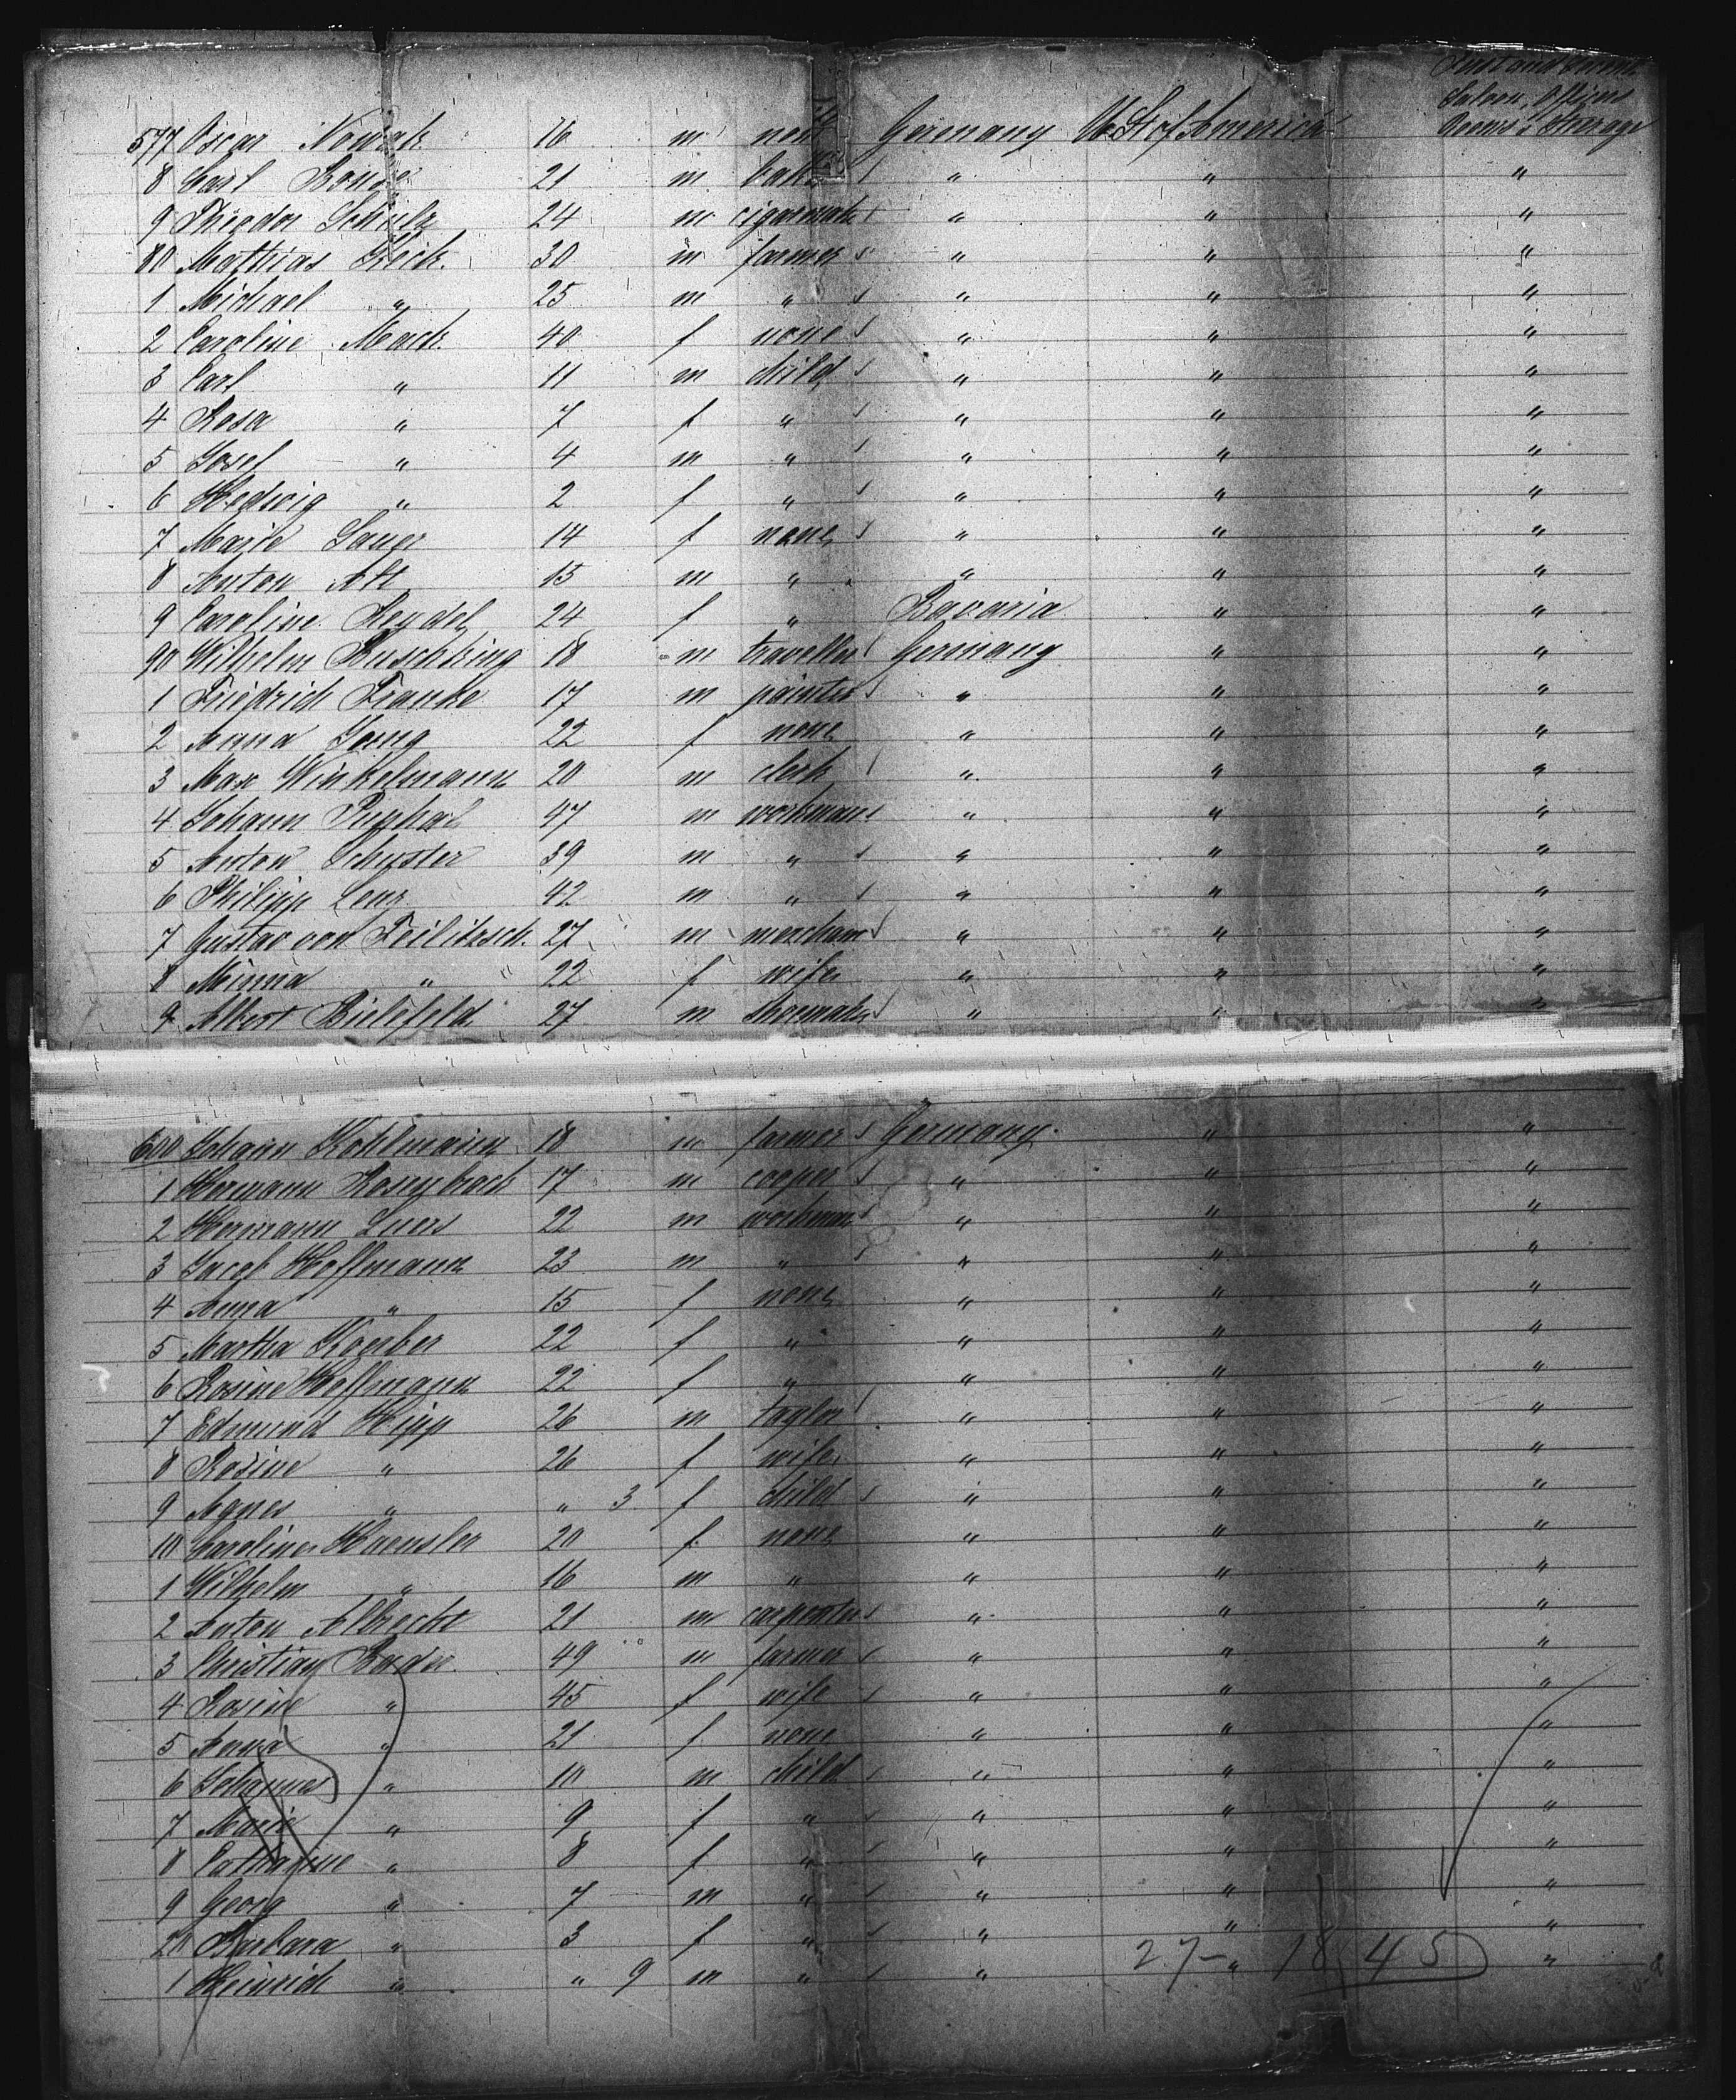 First and Second
Saloon, Officers
577 Oscar Nowak 16 m none Germany U. St. of America Rooms & Steerage
8 Carl 21 m " " "
9 Theodor Schulz 24 m cigarmaker " " "
80 Mathias 30 m farmer " " "
1 Michael " 25 m " " " "
2 Caroline Mack 40 f none " " "
3 Carl " 11 m child " " "
4 Rosa " 7 f " " " "
5 Josef " 4 m " " " "
6 Hedwig " 2 f " " " "
7 Marie 14 f none " " "
8 Anton Alt 15 m " " " "
9 Caroline Heydel 24 f " Bavaria " "
90 Wilhelm Buschking 18 m traveller Germany " "
1 Friedrich Franke 17 m painter " " "
2 Anna 22 f none " " "
3 Max Winkelmann 20 m clerk " " "
4 Johann 47 m workman " " "
5 Anton Schuster 39 m " " " "
6 Philipp Lenz 42 m " " " "
7 Gustav von Feilitzsch 27 m merchant " " "
8 Minna " 22 f wife " " "
9 Albert Bielefeld 27 m shoemaker " " "
600 Johann Kohlmann 18 m farmer Germany " "
1 Hermann Rosenback 17 m cooper " " "
2 Hermann Luers 22 m workman " " "
3 Jacob Hoffmann 23 m " " " "
4 Anna " 15 f none " " "
5 Martha Koerber 22 f " " " "
6 Rosine Hoffmann 22 f " " " "
7 Edmund Hipp 26 m taylor " " "
8 Rosine " 26 f wife " " "
9 Agnes " " 3 f child " " "
10 Caroline Haensler 20 f none " " "
1 Wilhelm " 16 m " " " "
2 Anton Albrecht 21 m carpenter " " "
3 Christian Bader 49 m farmer " " "
4 Rosine " 45 f wife " " "
5 Anna " 21 f none " " "
6 Johannes " 10 m child " " "
7 Marie " 9 f " " " "
8 Catharine " 8 f " " " "
9 Georg " 7 m " " " "
20 Barbara " 3 f " " " "
1 Heinrich " " 9 m " " " "
27- 1845